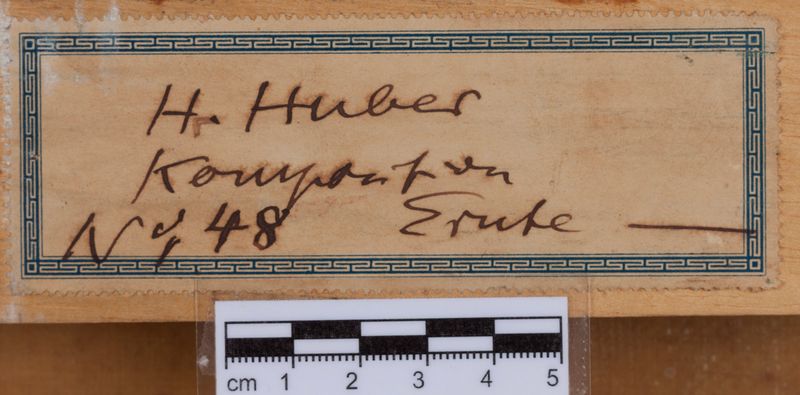 H. Huber
Komposition
No 48 Ernte
cm 1 2 3 4 5